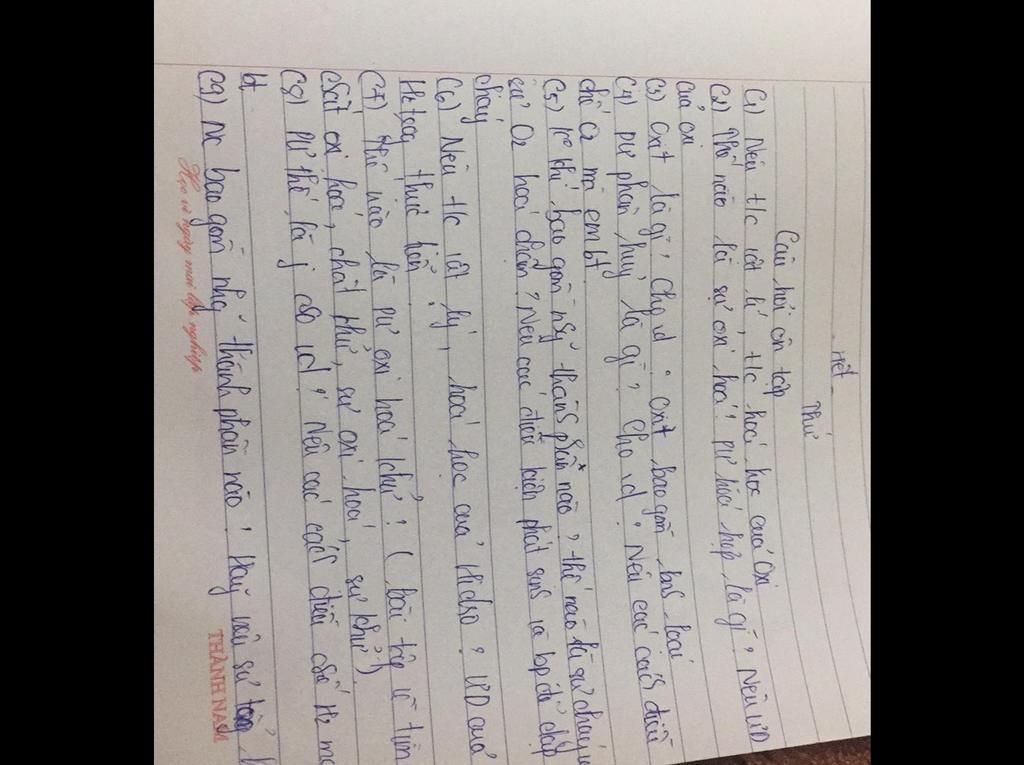 Hết
Thứ
Câu hỏi ôn tập
C1) Nêu t/c vật lí, t/c hoá học của Oxi
C2) Thế nào là sự oxi hoá? pư hóa hợp là gì? Nêu ƯD
của oxi
C3) oxit là gì, cho vd? oxit bao gồm bns loại
C4) pư phân huỷ là gì? Cho vd? Nêu các cách điều
chế O2 mà em bt
C5) K° khí bao gồm nhữ thành phần nào? thế nào là sự cháy,
sự O2 hoá chậm? Nêu các điều kiện phát sinh và bp để dập
cháy
C6) Nêu t/c vật lý, hoá học của Hidro? ƯD của
H2 trong thực tiễn?
C7) Thế nào là pư oxi hoá khử? (bài tập về tìm
chất oxi hoá, chất khử, sự oxi hoá, sự khử)
C8) pư thế là j cho vd? Nêu các cách điều chế H2 mà
bt
C9) Nc bao gồm nhữ thành phần nào? Hãy nêu sự
Học vì ngày mai lập nghiệp
THÀNH NAM